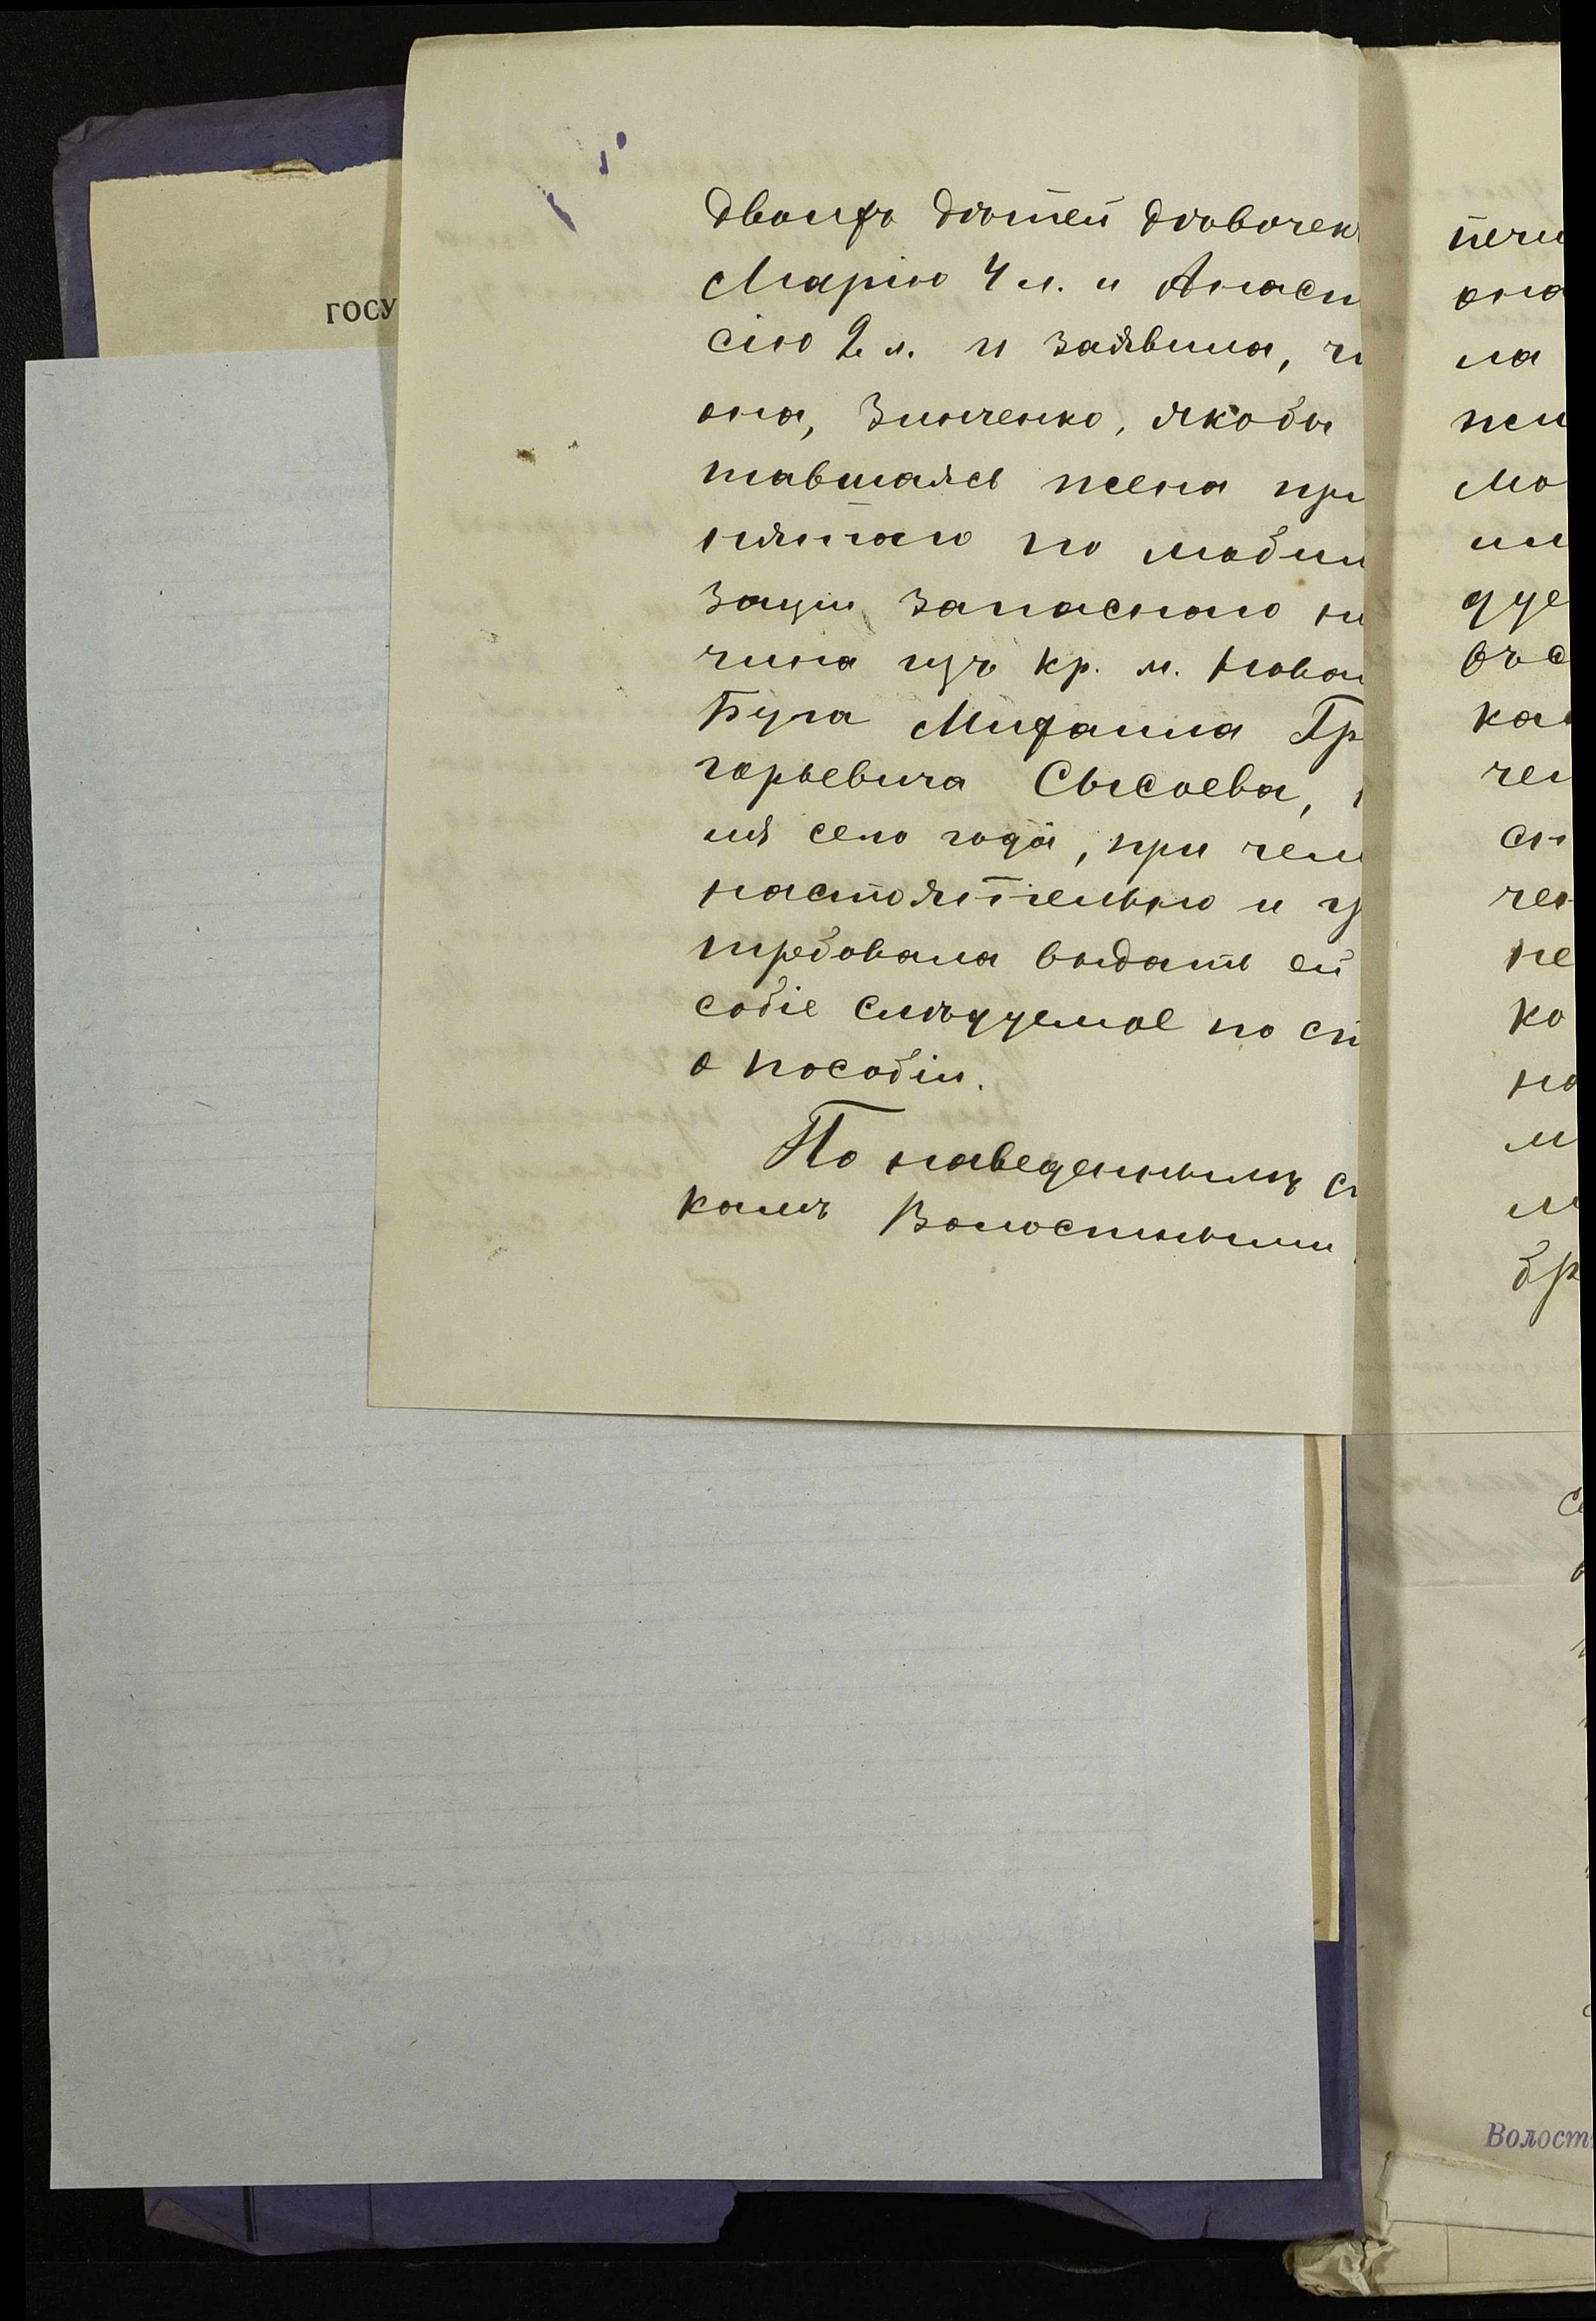 ГОСУ
двоихъ дѣтей дѣвочек
Марію 4 л. и Анаст
сію 2 л. и заявила, чт
она, Зинченко, якобы
тавшаясь жена при
нятаго по мобили
заціи запаснаго ни
чина изъ кр. м. Новаг
Буга Михаила Гр
горьевича Сысоева,
ля сего года, при чем
настоятельно и
требовала выдать ей
собіе слѣдуемое по
о пособіи.
По наведеннымъ с
камъ Волостнымъ
печи
она
ла
жи
мо
ли
дуе
въс
ка
чен
сн
чен
не
ко
но
м
м
бр
Волост